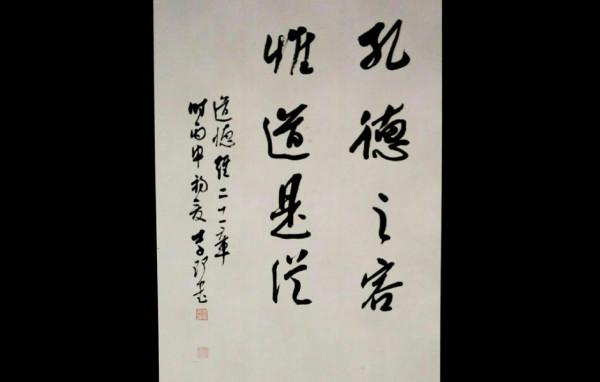 孔德之容
惟道是從
道德經二十一章
時丙申初夏李書